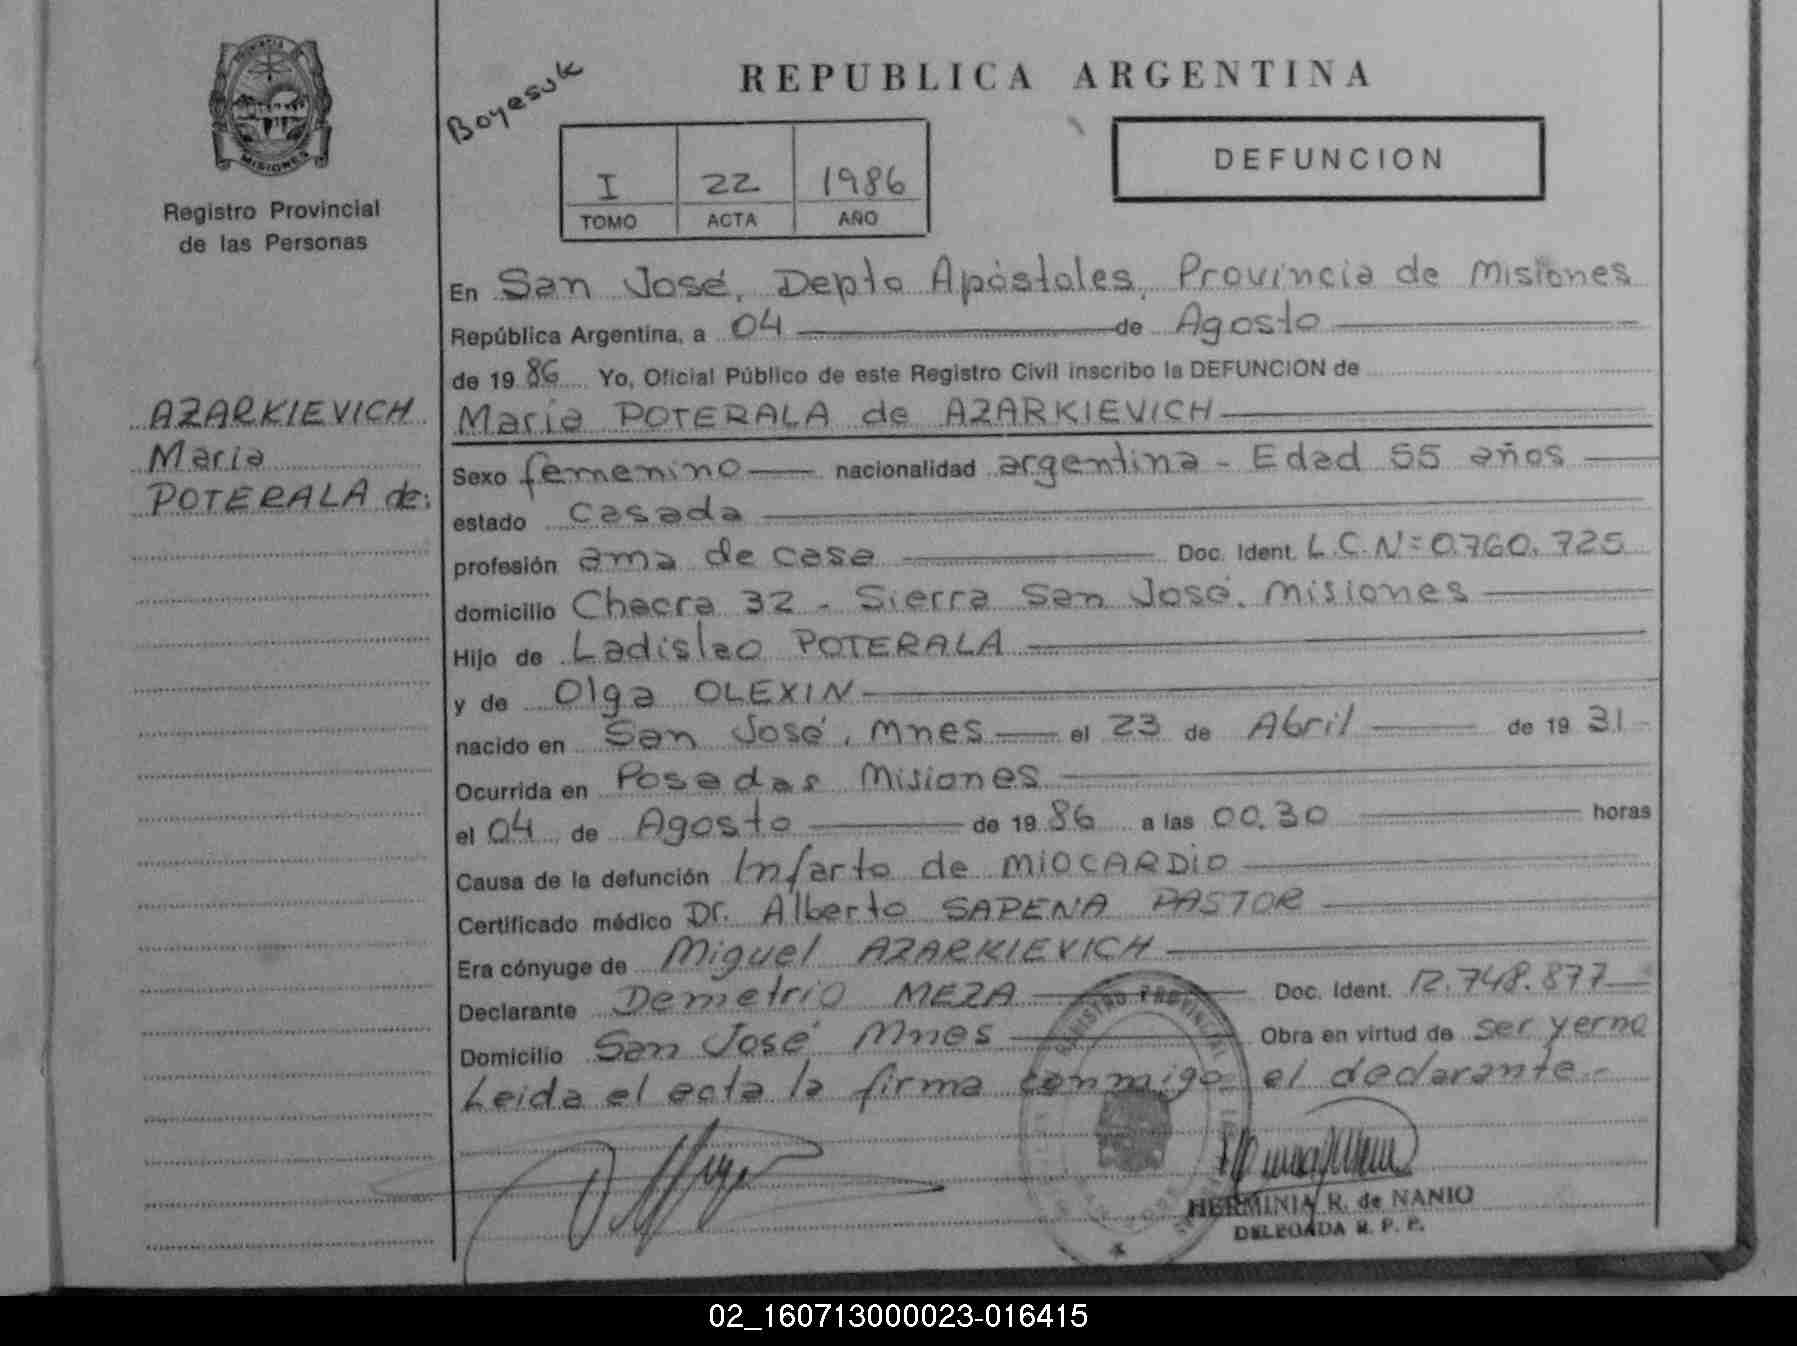 PROVINCIA DE
MISIONES
Registro Provincial
de las Personas
AZARKIEVICH
Maria
POTERALA de:
Boyesuk
REPUBLICA ARGENTINA
I 22 1986
TOMO ACTA AÑO
DEFUNCION
En San José, Depto Apóstoles, Provincia de Misiones
República Argentina, a 04 de Agosto
de 19 86 Yo, Oficial Público de este Registro Civil inscribo la DEFUNCION de
Maria POTERALA de AZARKIEVICH
Sexo femenino nacionalidad argentina - Edad 55 años
estado casada
profesión ama de casa Doc. Ident. L.C.Nº 0.760.725
domicilio Chacra 32 - Sierra San José, Misiones
Hijo de Ladislao POTERALA
y de Olga OLEXIN
nacido en San José, Mnes el 23 de Abril de 19 31
Ocurrida en Posadas Misiones
el 04 de Agosto de 19 86 a las 00.30 horas
Causa de la defunción Infarto de MIOCARDIO
Certificado médico Dr. Alberto SAPENA PASTOR
Era cónyuge de Miguel AZARKIEVICH
Declarante Demetrio MEZA Doc. Ident. 12.748.877
Domicilio San José Mnes Obra en virtud de ser yerno
Leida el acta la firma conmigo el declarante.-
REGISTRO PROVINCIAL
HERMINIA R. de NANIO
DELEGADA R. P. P.
02_160713000023-016415